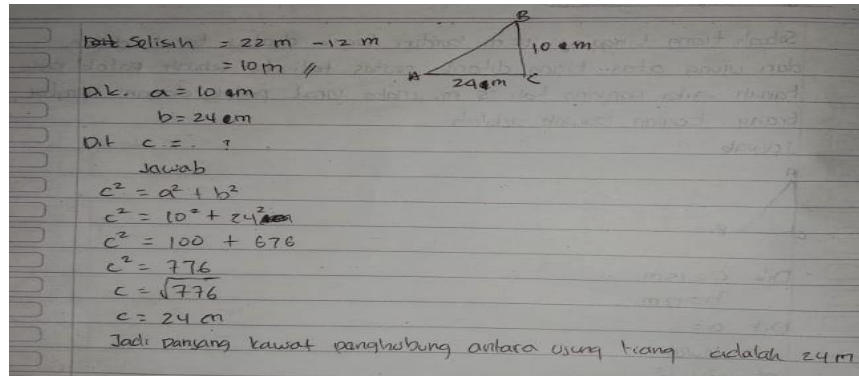 Selisih = 22 m - 12 m
= 10 m //
B
10 m
A
24 m
C
D.k. a = 10 m
b = 24 m
Dit c = . ?
Jawab
c² = a² + b²
c² = 10² + 24²
c² = 100 + 676
c² = 776
c = √776
c = 24 m
Jadi Panjang kawat penghubung antara ujung tiang adalah 24 m